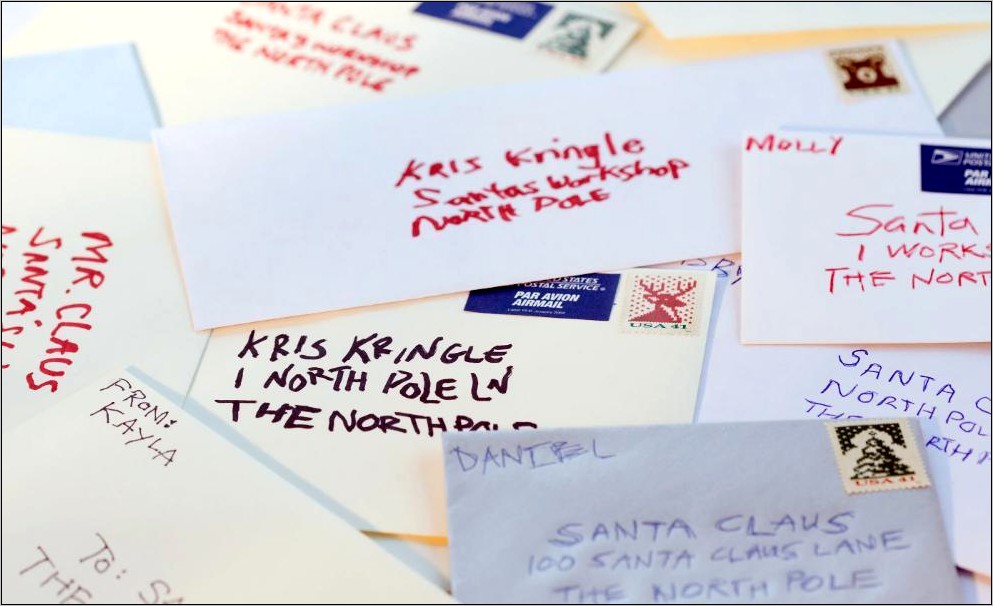 SANTA CLAUS
SANTA'S WORKSHOP
THE NORTH POLE
KRIS Kringle
Santas Workshop
NORTH POLE
MOLLY
UNIT
POSTA
PAR
AIRM
Santa
1 WORKS
THE NORT
MR. CLAUS
SANTA'S
STATES
POSTAL SERVICE®
PAR AVION
AIRMAIL
USA 41
KRIS KRINGLE
1 NORTH POLE LN
THE NORTH POLE
SANTA C
NORTH POL
THE
RTH
FROM:
KAYLA
TO: SA
THE
DANIEL
USA 41
SANTA CLAUS
100 SANTA CLAUS LANE
THE NORTH POLE